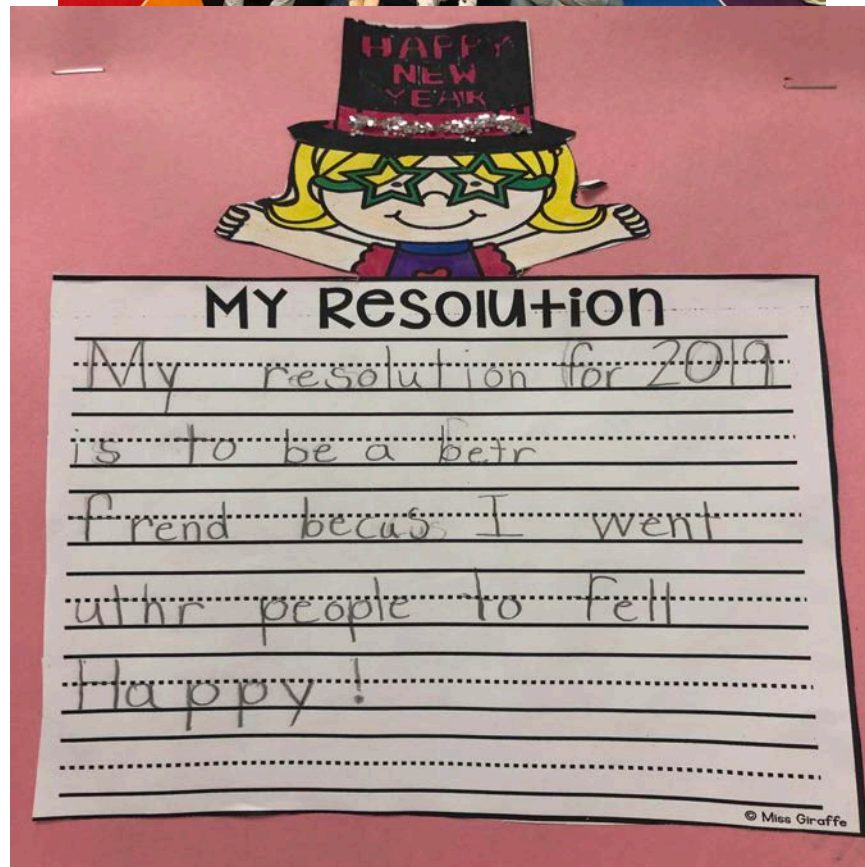 HAPPY
NEW
YEAR
MY Resolution
My resolution for 2019
is to be a betr
frend becus I went
uthr people to Fell
Happy!
© Miss Giraffe